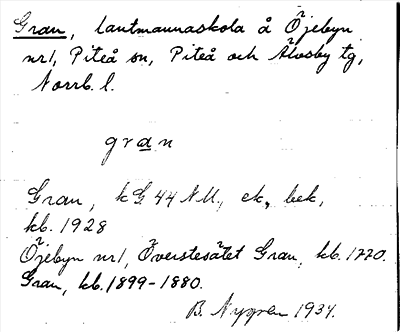 Gran, lantmannaskola å Öjebyn
nr1, Piteå sn, Piteå och Älvsby tg,
Norrb. l.
gran
Gran, kG 44 NU., ek, bek,
kb. 1928
Öjebyn nr1, Överstesätet Gran, kb. 1770.
Gran, kb. 1899-1880.
B. Nygren 1934.